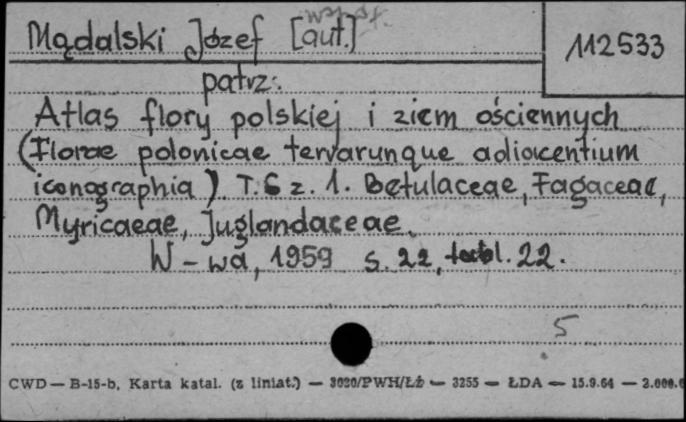 Mądalski Józef [aut.]
112533
patrz:
Atlas flory polskiej i ziem ościennych
(Florae polonicae terrarunque adiacentium
iconographia). T.6 z. 1. Betulaceae, Fagaceae,
Myricaeae, Juglandaceae.
W-wa, 1959 s. 22, tabl. 22.
5
CWD — B-15-b, Karta katal. (z liniat.) — 3020/PWH/Łż — 3255 — ŁDA — 15.9.64 — 2.000.0